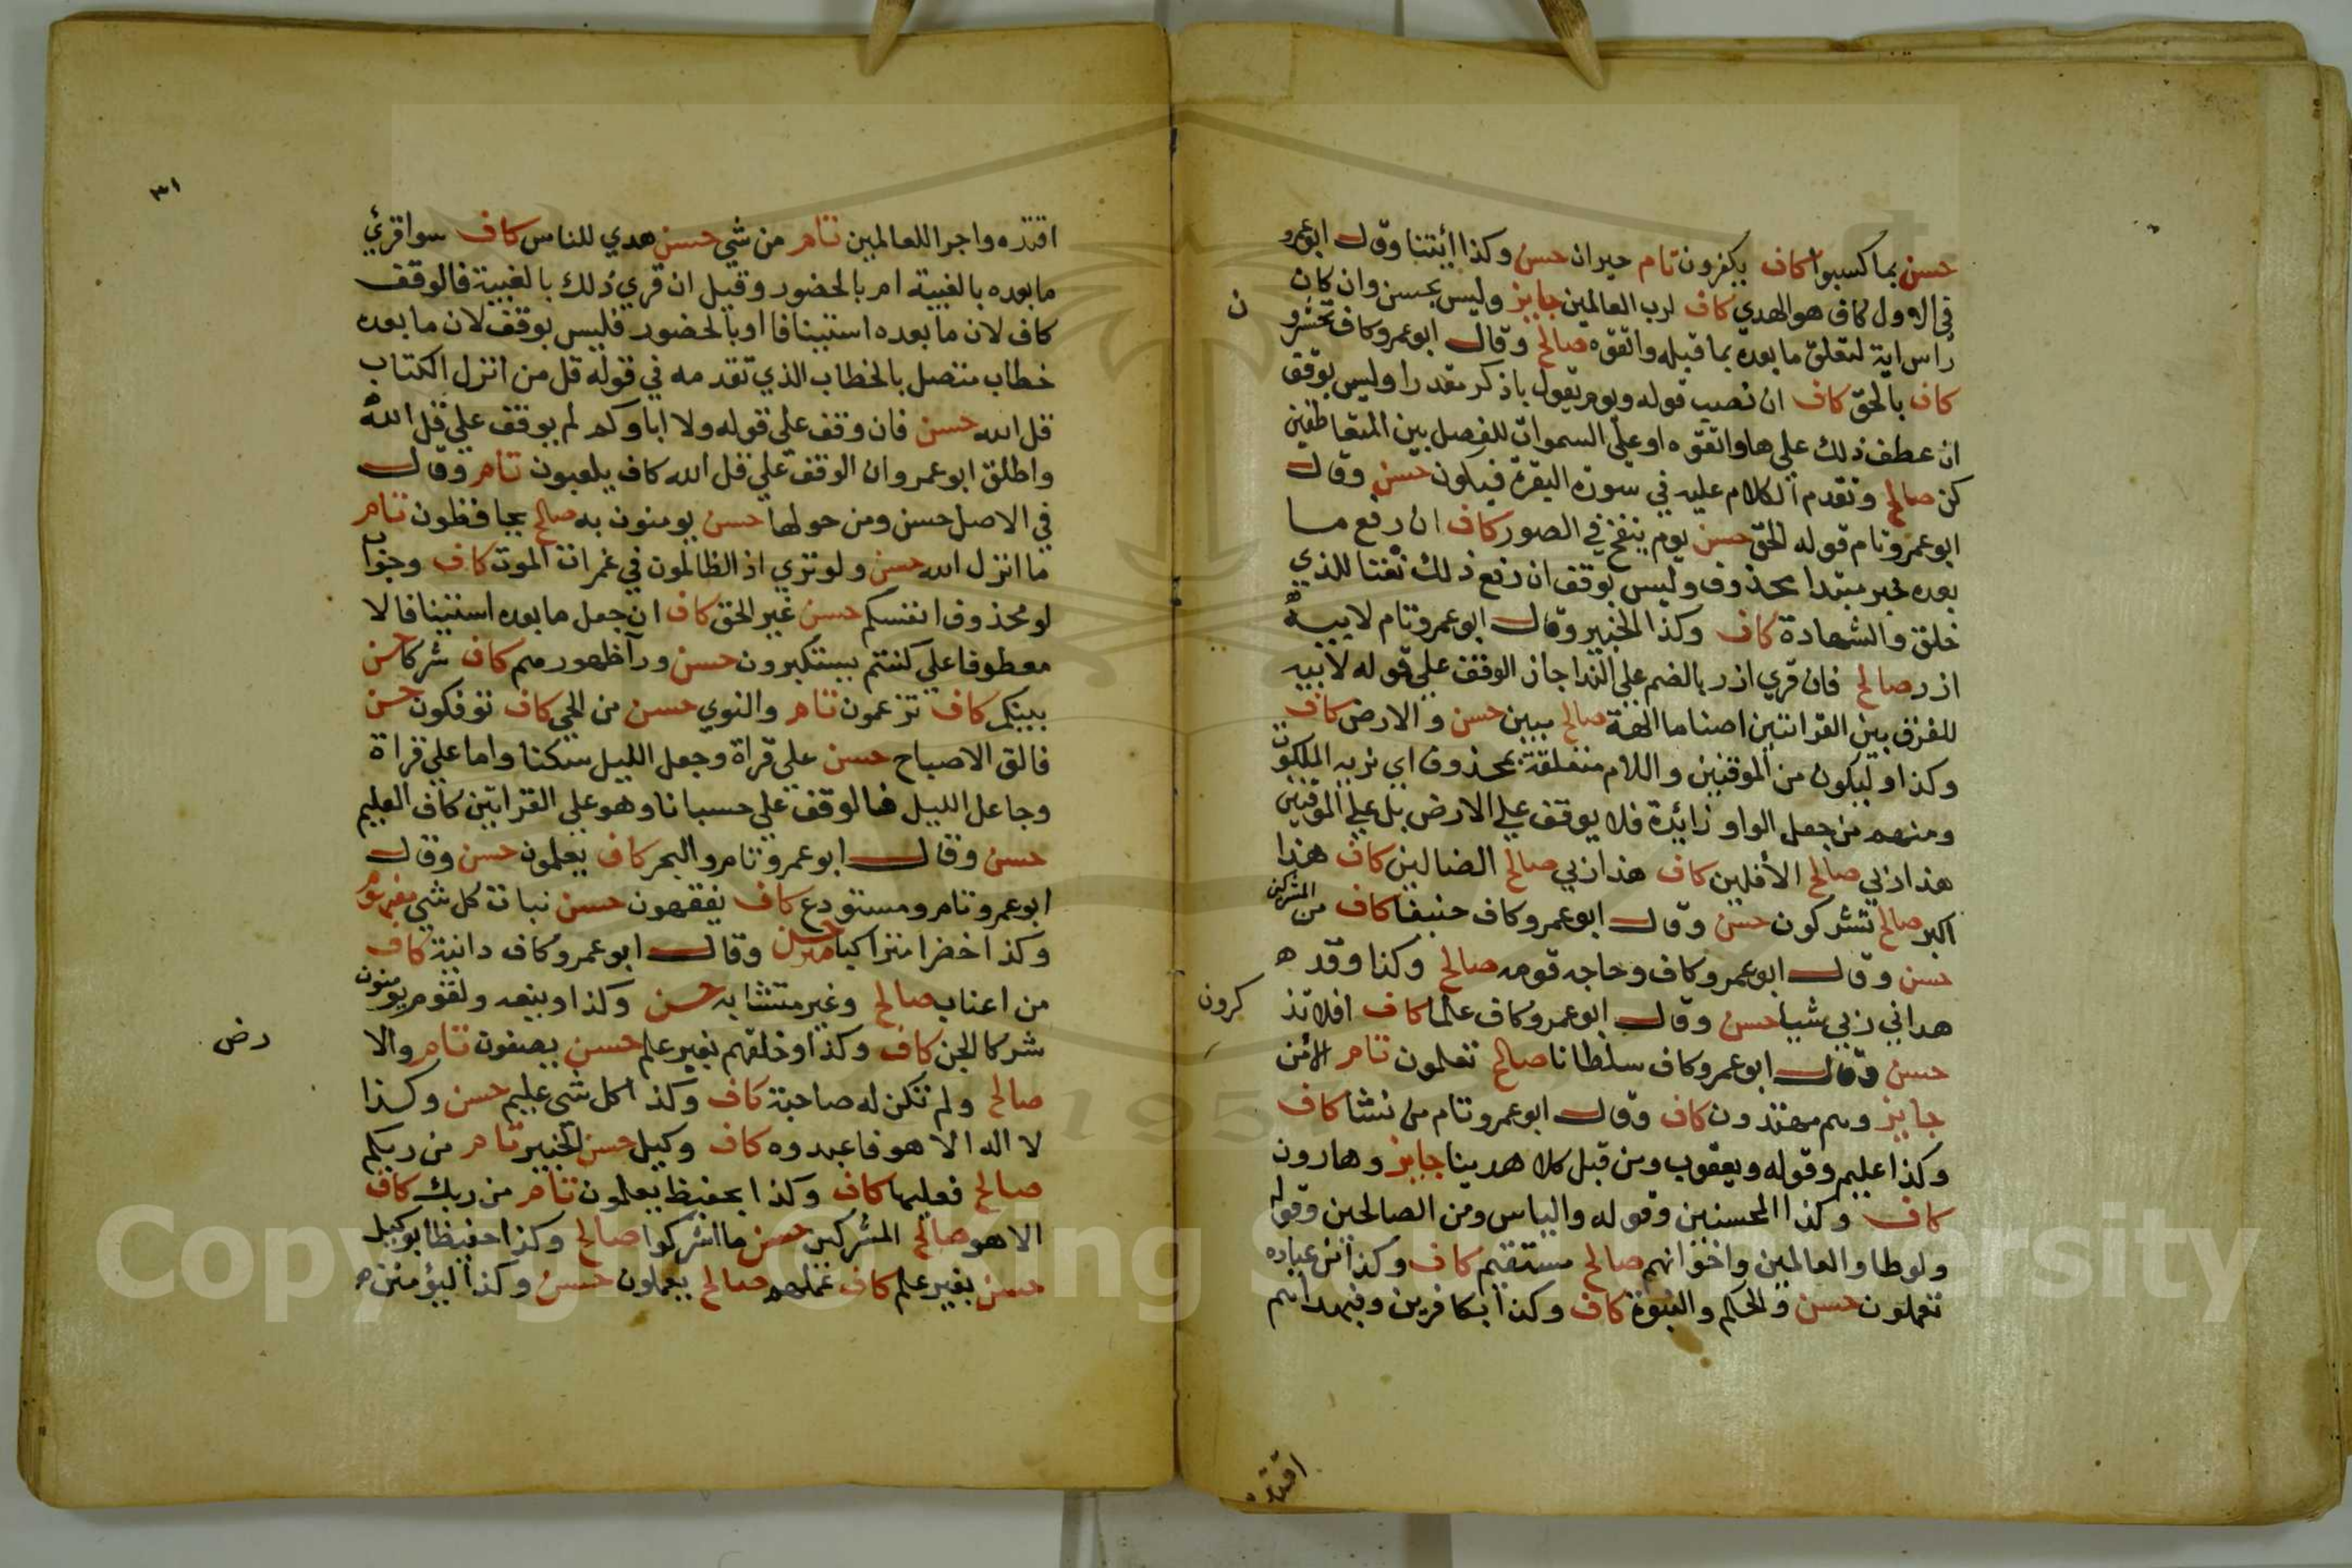 حسن بما كسبوا كاف يكفرون تام حيران حسن وكذا ائتنا وقال ابوعمرو
في الاول كاف هو الهدي كاف لرب العالمين جايز وليس بحسن وان كان
راس اية لتعلق ما بعده بما قبله واتقوه صالح وقال ابوعمرو كاف تحشرو
ن
كاف بالحق كاف ان نصب قوله ويوم يقول باذكر مقدرا وليس بوقف
ان عطف ذلك علي ها واتقوه او علي السموات للفصل بين المتعاطفين
كن صالح وتقدم الكلام عليه في سورة البقرة فيكون حسن وقال
ابوعمرو تام قوله الحق حسن يوم ينفخ في الصور كاف ان رفع ما
بعده خبر مبتدا محذوف وليس بوقف ان رفع ذلك نعتا للذي
خلق والشهادة كاف وكذا الخبير وقال ابوعمرو تام لابيه
ازر صالح فان قري ازر بالضم علي الندا جاز الوقف علي قوله لابيه
للفرق بين القراتين اصناما الهة صالح مبين حسن والارض كاف
وكذا وليكون من الموقنين واللام متعلقة بمحذوف اي نريه الملكوت
ومنهم من جعل الواو زائدة فلا يوقف علي الارض بل علي الموقنين
هذا ربي صالح الأفلين كاف هذا ربي صالح الضالين كاف هذا
اكبر صالح تشركون حسن وقال ابوعمرو كاف حنيفا كاف من المشركين
حسن وقال ابوعمرو كاف وحاجه قومه صالح وكذا وقد ه
هداني ربي شيا حسن وقال ابوعمرو كاف علما كاف افلا تذ
كرون
حسن وقال ابوعمرو كاف سلطانا صالح تعلمون تام الامن
جايز وهم مهتدون كاف وقال ابوعمرو تام من نشا كاف
وكذا عليم وقوله ويعقوب ومن قبل كلا هدينا جايز وهارون
كاف وكذا المحسنين وقوله والياس ومن الصالحين وقوله
ولوطا والعالمين واخوانهم صالح مستقيم كاف وكذا من عباده
تعملون حسن والحكم والنبوة كاف وكذا بكافرين وفبهداهم
اقتده
٣١
اقتده واجرا للعالمين تام من شي حسن هدي للناس كاف سوا قرئ
ما بعده بالغيبة ام بالحضور وقيل ان قري ذلك بالغيبة فالوقف
كاف لان ما بعده استينافا او بالحضور فليس بوقف لان ما بعده
خطاب متصل بالخطاب الذي تقدمه في قوله قل من انزل الكتاب
قل الله حسن فان وقف علي قوله ولا اباوكم لم يوقف علي قل الله
واطلق ابوعمرو ان الوقف علي قل الله كاف يلعبون تام وقال
في الاصل حسن ومن حولها حسن يومنون به صالح يحافظون تام
ما انزل الله حسن ولو تري اذ الظالمون في غمرات الموت كاف وجواب
لو محذوف انفسكم حسن غير الحق كاف ان جعل ما بعده استينافا لا
معطوفا علي كنتم تستكبرون حسن ورآ ظهورهم كاف شركا حسن
بينكم كاف تزعمون تام والنوي حسن من الحي كاف توفكون حسن
فالق الاصباح حسن علي قراة وجعل الليل سكنا واما علي قراة
وجاعل الليل فالوقف علي حسبانا وهو علي القراتين كاف العليم
حسن وقال ابوعمرو تام والبحر كاف يعلمون حسن وقال
ابوعمرو تام ومستودع كاف يفقهون حسن نبات كل شي مفهوم
وكذا خضرا متراكبا حسن وقال ابوعمرو كاف دانية كاف
من اعناب صالح وغير متشابه حسن وكذا وينعه ولقوم يومنون
شركا الجن كاف وكذا وخلقهم بغير علم حسن يصفون تام والا
رض
صالح ولم تكن له صاحبة كاف وكذا كل شي عليم حسن وكذا
لا اله الا هو فاعبدوه كاف وكيل حسن الخبير تام من ربكم
صالح فعليها كاف وكذا بحفيظ يعلمون تام من ربك كاف
الا هو صالح المشركين حسن ما اشركوا صالح وكذا حفيظا بوكيل
حسن بغير علم كاف عملهم صالح يعملون حسن وكذا ليؤمنن ه
Copyright © King Saud University
1957